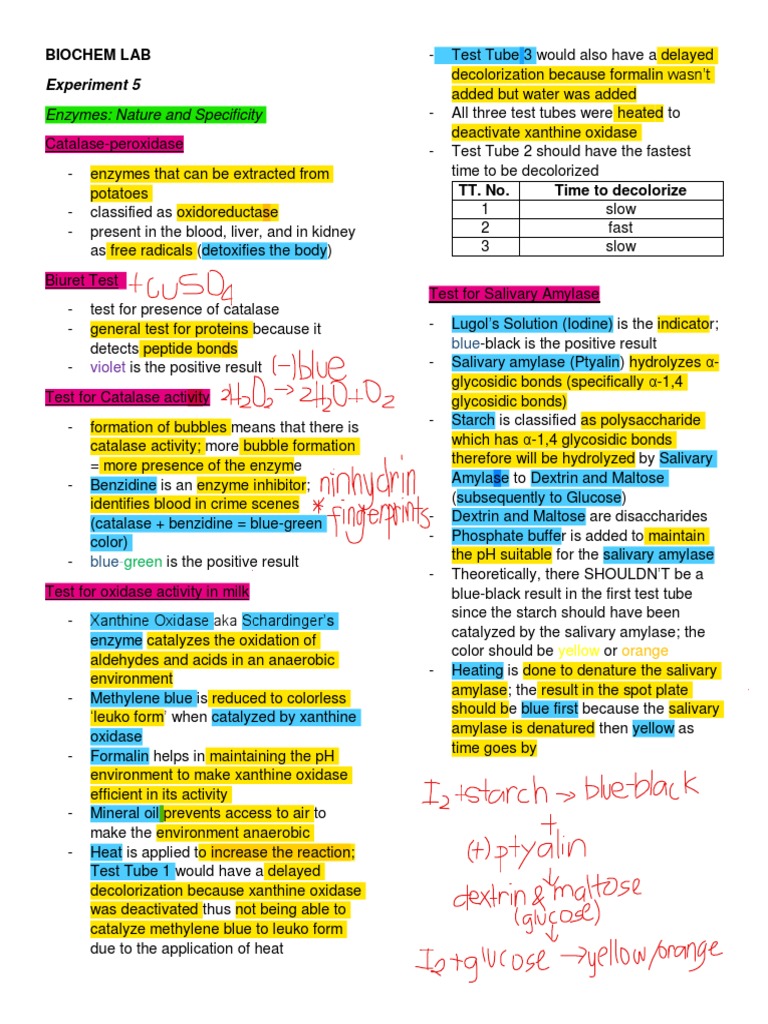 BIOCHEM LAB
Experiment 5
Enzymes: Nature and Specificity
Catalase-peroxidase
- enzymes that can be extracted from
potatoes
- classified as oxidoreductase
- present in the blood, liver, and in kidney
as free radicals (detoxifies the body)
Biuret Test +CuSO4
- test for presence of catalase
- general test for proteins because it
detects peptide bonds
- violet is the positive result (-)blue
Test for Catalase activity 2H2O2 → 2H2O + O2
- formation of bubbles means that there is
catalase activity; more bubble formation
= more presence of the enzyme
- Benzidine is an enzyme inhibitor;
identifies blood in crime scenes
(catalase + benzidine = blue-green
color)
ninhydrin
* fingerprints
- blue-green is the positive result
Test for oxidase activity in milk
- Xanthine Oxidase aka Schardinger's
enzyme catalyzes the oxidation of
aldehydes and acids in an anaerobic
environment
- Methylene blue is reduced to colorless
'leuko form' when catalyzed by xanthine
oxidase
- Formalin helps in maintaining the pH
environment to make xanthine oxidase
efficient in its activity
- Mineral oil prevents access to air to
make the environment anaerobic
- Heat is applied to increase the reaction;
Test Tube 1 would have a delayed
decolorization because xanthine oxidase
was deactivated thus not being able to
catalyze methylene blue to leuko form
due to the application of heat
- Test Tube 3 would also have a delayed
decolorization because formalin wasn't
added but water was added
- All three test tubes were heated to
deactivate xanthine oxidase
- Test Tube 2 should have the fastest
time to be decolorized
TT. No. Time to decolorize
1 slow
2 fast
3 slow
Test for Salivary Amylase
- Lugol's Solution (Iodine) is the indicator;
blue-black is the positive result
- Salivary amylase (Ptyalin) hydrolyzes α-
glycosidic bonds (specifically α-1,4
glycosidic bonds)
- Starch is classified as polysaccharide
which has α-1,4 glycosidic bonds
therefore will be hydrolyzed by Salivary
Amylase to Dextrin and Maltose
(subsequently to Glucose)
- Dextrin and Maltose are disaccharides
- Phosphate buffer is added to maintain
the pH suitable for the salivary amylase
- Theoretically, there SHOULDN'T be a
blue-black result in the first test tube
since the starch should have been
catalyzed by the salivary amylase; the
color should be yellow or orange
- Heating is done to denature the salivary
amylase; the result in the spot plate
should be blue first because the salivary
amylase is denatured then yellow as
time goes by
I2+starch → blue-black
+
(+) ptyalin
↓
dextrin & maltose
(glucose)
↓
I2+glucose → yellow/orange